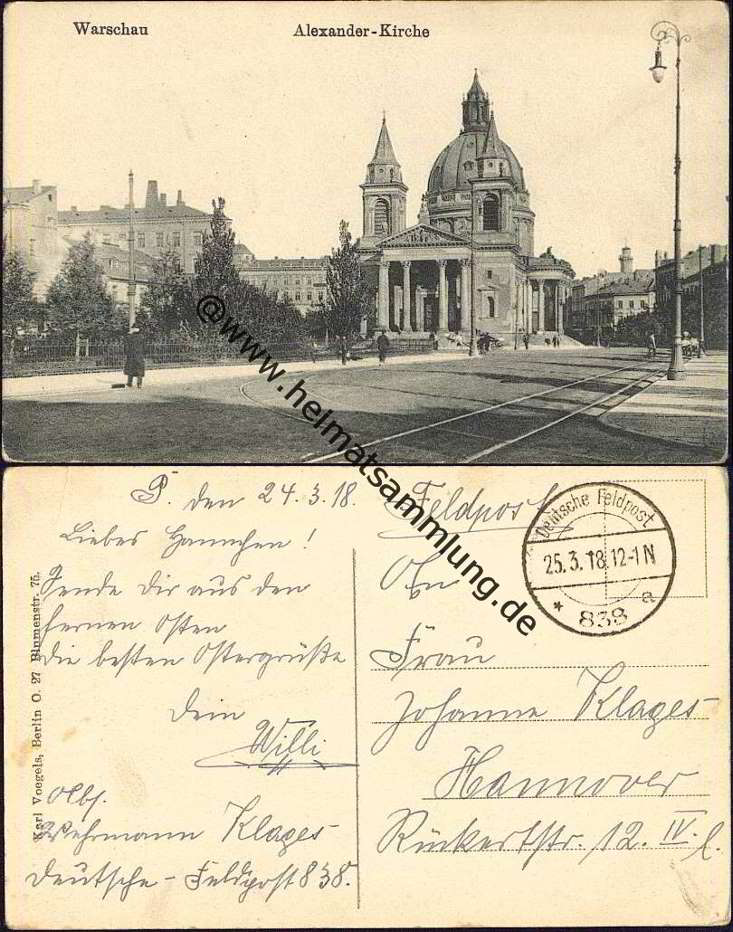 Warschau
Alexander-Kirche
@www.heimatsammlung.de
P. den 24.3.18.
Liebes Hannchen!
Sende Dir aus den
fernen Osten
die besten Ostergrüße
Dein
Willi
Abs.
Wehrmann Klages
Deutsche-Feldpost 838.
Karl Voegels, Berlin O. 27 Blumenstr. 75.
Feldpost
Deutsche Feldpost
25.3.18.12-1N
* 838 a
An
Frau
Johanne Klages
Hannover
Rückertstr. 12. IV. l.